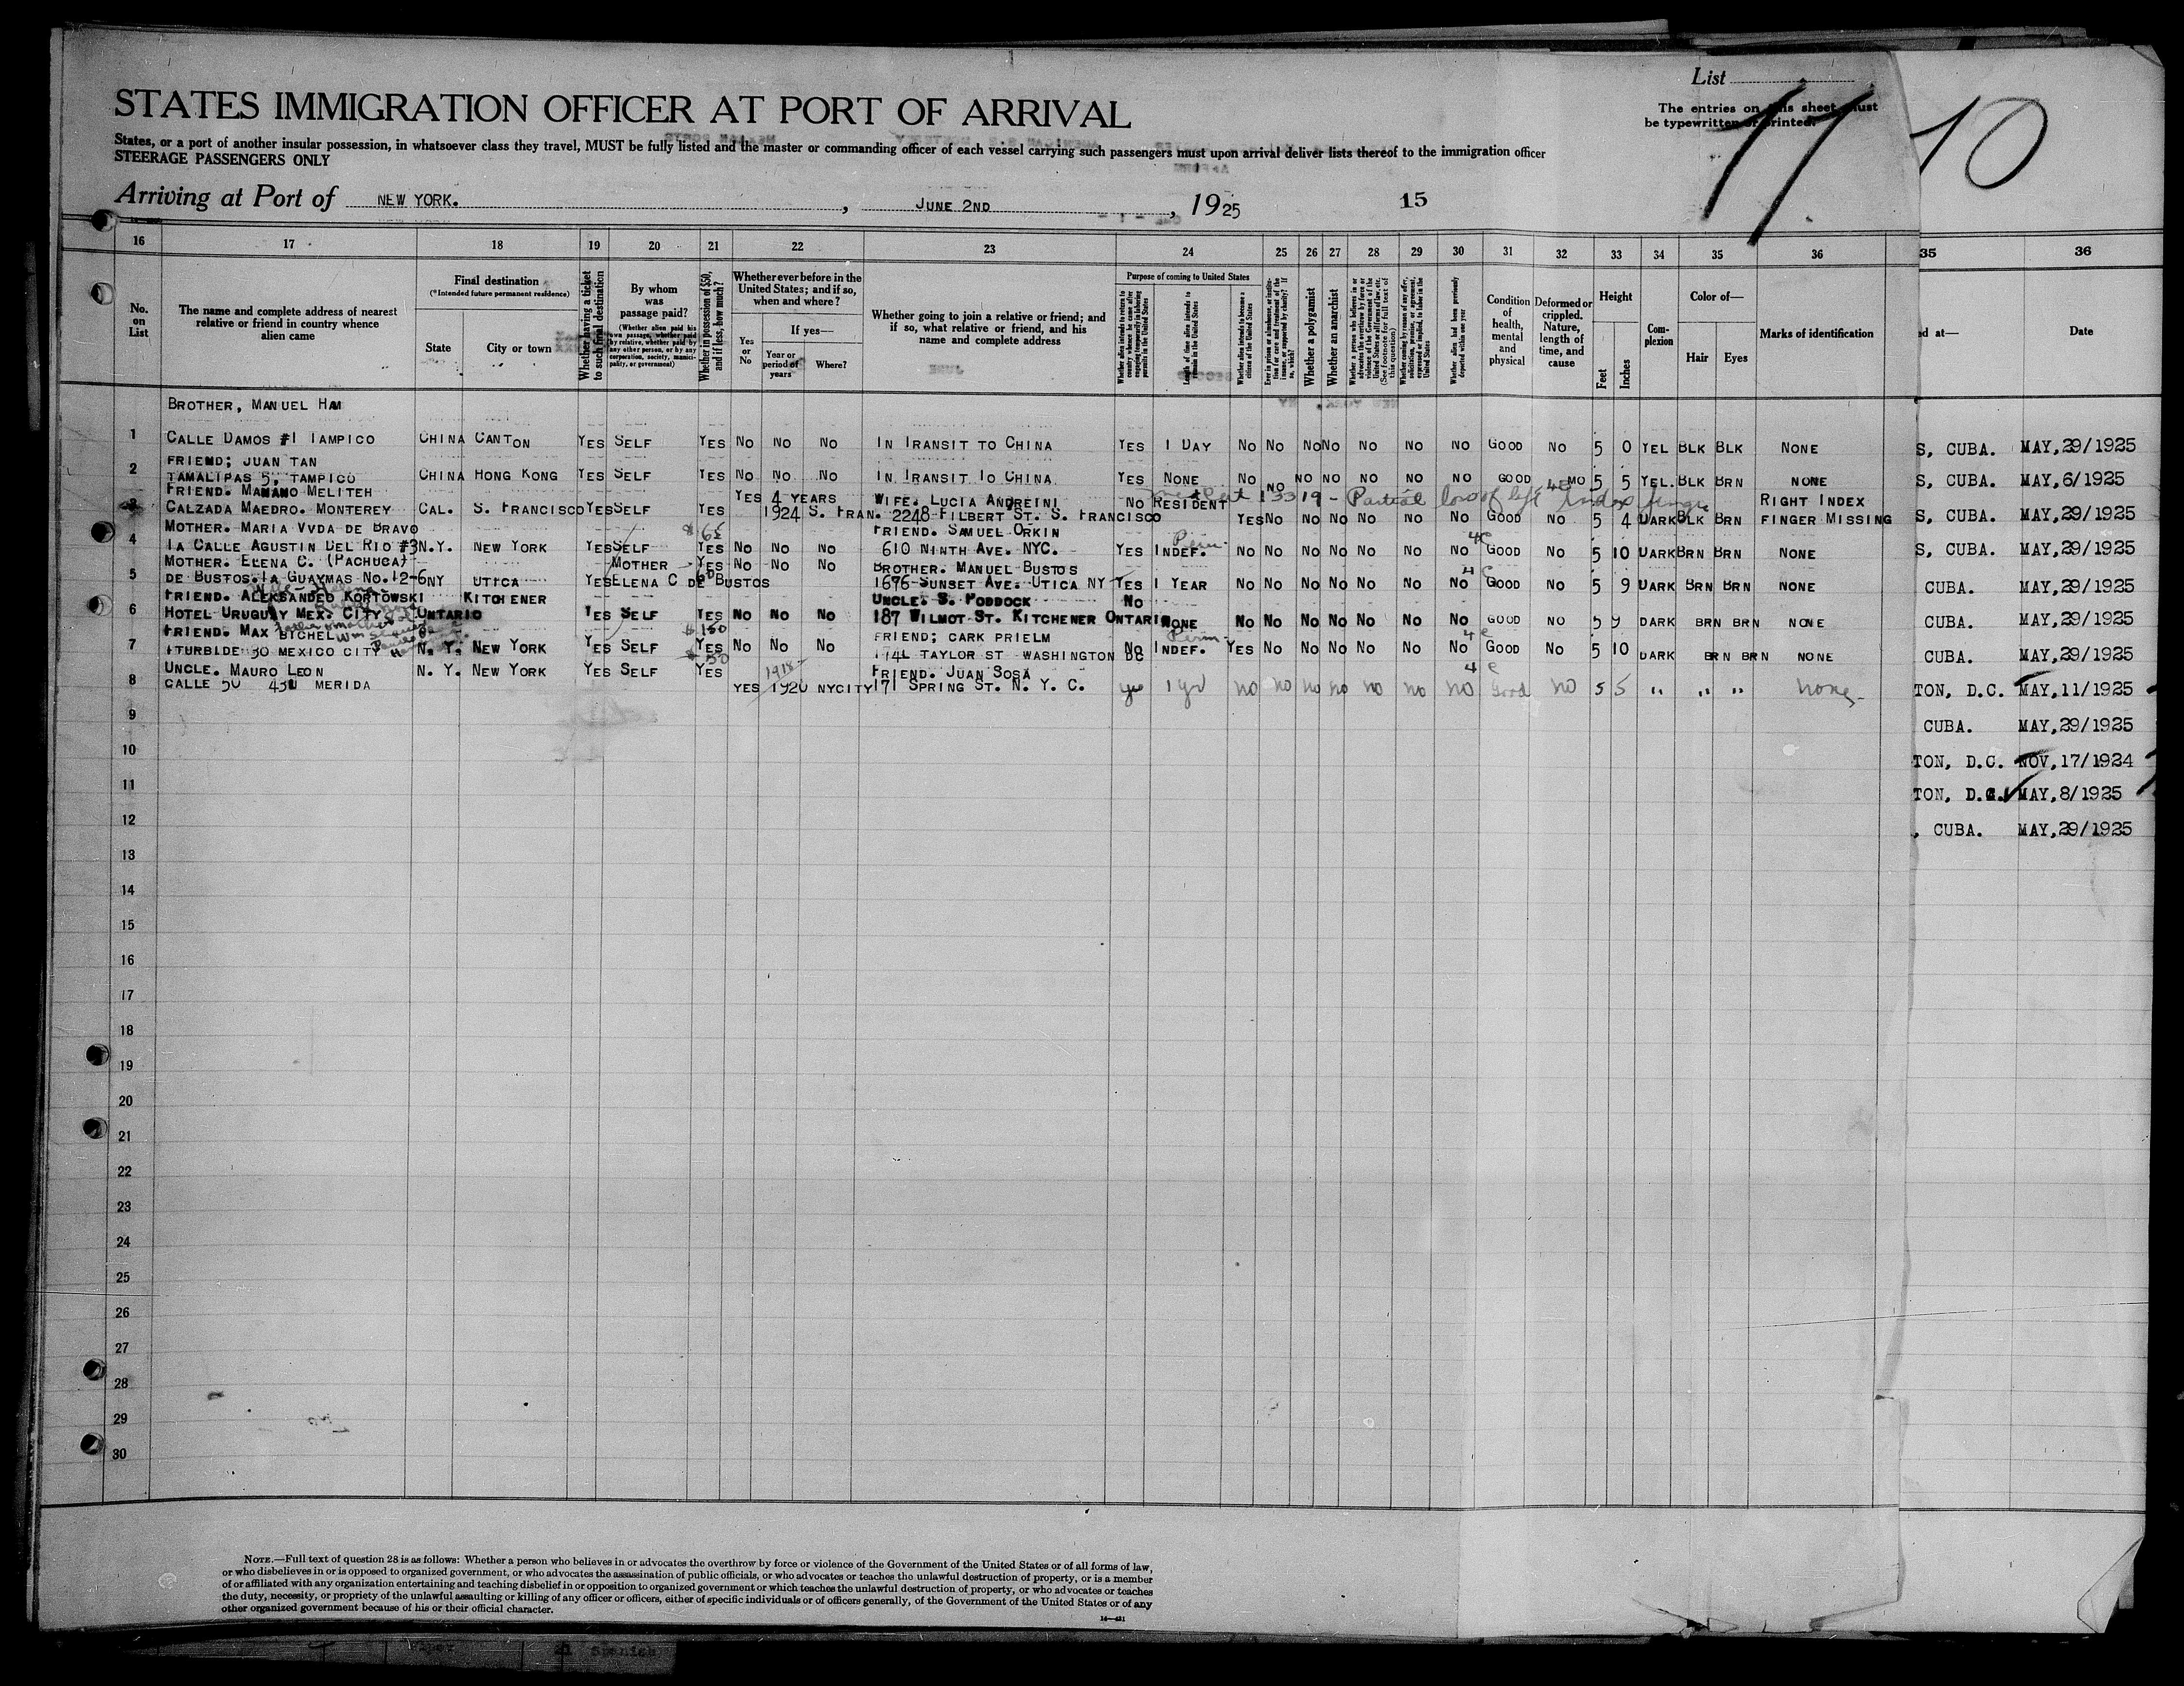 List
The entries on this sheet must
be typewritten or printed.
11
10
STATES IMMIGRATION OFFICER AT PORT OF ARRIVAL
States, or a port of another insular possession, in whatsoever class they travel, MUST be fully listed and the master or commanding officer of each vessel carrying such passengers must upon arrival deliver lists thereof to the immigration officer
STEERAGE PASSENGERS ONLY
Arriving at Port of NEW YORK. , JUNE 2ND , 1925 15
16 17 18 19 20 21 22 23 24 25 26 27 28 29 30 31 32 33 34 35 36 35 36
No. on List
The name and complete address of nearest relative or friend in country whence alien came
Final destination
(*Intended future permanent residence)
State City or town
Whether having a ticket to such final destination
By whom was passage paid?
(Whether alien paid his own passage, whether paid by relative, whether paid by any other person, or by any corporation, society, municipality, or government)
Whether in possession of $50, and if less, how much?
Whether ever before in the United States; and if so, when and where?
Yes or No
If yes—
Year or period of years
Where?
Whether going to join a relative or friend; and if so, what relative or friend, and his name and complete address
Purpose of coming to United States
Length of time alien intends to remain in the United States
Whether alien intends to become a citizen of the United States
Whether a polygamist
Whether an anarchist
Whether alien had been previously deported within one year
Condition of health, mental and physical
Deformed or crippled. Nature, length of time, and cause
Height
Feet Inches
Complexion
Color of—
Hair Eyes
Marks of identification
ed at—
Date
BROTHER, MANUEL HAM
1 CALLE DAMOS #1 TAMPICO CHINA CANTON YES SELF YES NO NO NO IN TRANSIT TO CHINA YES 1 DAY NO NO NO NO NO NO NO GOOD NO 5 0 YEL BLK BLK NONE S, CUBA. MAY,29/1925
FRIEND; JUAN TAN
2 TAMALIPAS 5, TAMPICO CHINA HONG KONG YES SELF YES NO NO NO IN TRANSIT TO CHINA YES NONE NO NO NO NO NO NO NO GOOD NO 5 5 YEL. BLK BRN NONE S, CUBA. MAY,6/1925
FRIEND. MAMANO MELITEH YES 4 YEARS WIFE. LUCIA ANDREINI NO RESIDENT Partial loss of left index finger RIGHT INDEX
3 CALZADA MAEDRO. MONTEREY CAL. S. FRANCISCO YES SELF YES 1924 S. FRAN. 2248 FILBERT ST. S. FRANCISCO YES NO NO NO NO NO NO GOOD NO 5 4 DARK BLK BRN FINGER MISSING S, CUBA. MAY,29/1925
MOTHER. MARIA VVDA DE BRAVO $65 FRIEND. SAMUEL ORKIN
4 1A CALLE AGUSTIN DEL RIO #3 N.Y. NEW YORK YES SELF YES NO NO NO 610 NINTH AVE. NYC. YES INDEF. NO NO NO NO NO NO NO GOOD NO 5 10 DARK BRN BRN NONE S, CUBA. MAY,29/1925
MOTHER. ELENA C. (PACHUCA) MOTHER YES NO NO NO BROTHER. MANUEL BUSTOS
5 DE BUSTOS. 1A GUAYMAS NO. 12-6 NY UTICA YES ELENA C DE BUSTOS 1676 SUNSET AVE. UTICA NY YES 1 YEAR NO NO NO NO NO NO NO GOOD NO 5 9 DARK BRN BRN NONE CUBA. MAY,29/1925
FRIEND. ALEKSANDEO KORTOWSKI KITCHENER UNCLE. S. PODDOCK NO
6 HOTEL URUGUAY MEX. CITY ONTARIO YES SELF YES NO NO NO 187 WILMOT ST. KITCHENER ONTARIO NONE NO NO NO NO NO NO NO GOOD NO 5 9 DARK BRN BRN NONE CUBA. MAY,29/1925
FRIEND. MAX BICHEL $150 FRIEND; CARK PRIELM
7 ITURBIDE 30 MEXICO CITY N. Y. NEW YORK YES SELF YES NO NO NO TAYLOR ST WASHINGTON DC NO INDEF. YES NO NO NO NO NO NO GOOD NO 5 10 DARK BRN BRN NONE CUBA. MAY,29/1925
UNCLE. MAURO LEON N. Y. NEW YORK YES SELF YES $50 1918- FRIEND. JUAN SOSA
8 CALLE 50 MERIDA YES 1920 NYCITY 171 SPRING ST. N. Y. C. yes 1 yr no no no no no no no Good no 5 5 " " " none TON, D.C. MAY,11/1925
9 CUBA. MAY,29/1925
10 TON, D.C. NOV,17/1924
11 TON, D.C. MAY,8/1925
12 , CUBA. MAY,29/1925
13
14
15
16
17
18
19
20
21
22
23
24
25
26
27
28
29
30
NOTE.—Full text of question 28 is as follows: Whether a person who believes in or advocates the overthrow by force or violence of the Government of the United States or of all forms of law,
or who disbelieves in or is opposed to organized government, or who advocates the assassination of public officials, or who advocates or teaches the unlawful destruction of property, or is a member
of or affiliated with any organization entertaining and teaching disbelief in or opposition to organized government or which teaches the unlawful destruction of property, or who advocates or teaches
the duty, necessity, or propriety of the unlawful assaulting or killing of any officer or officers, either of specific individuals or of officers generally, of the Government of the United States or of any
other organized government because of his or their official character.